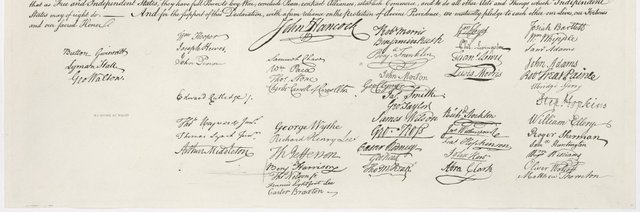 that as Free and Independent States, they have full Power to levy War, conclude Peace, contract Alliances, establish Commerce, and to do all other Acts and Things which Independent
States may of right do. — And for the support of this Declaration, with a firm reliance on the protection of divine Providence, we mutually pledge to each other our Lives, our Fortunes
and our sacred Honor.
John Hancock
Button Gwinnett
Lyman Hall
Geo Walton.
Wm Hooper
Joseph Hewes,
John Penn
Edward Rutledge /.
Thos Heyward Junr.
Thomas Lynch Junr.
Arthur Middleton
Samuel Chase
Wm Paca
Thos Stone
Charles Carroll of Carrollton
George Wythe
Richard Henry Lee
Th Jefferson
Benj Harrison
Thos Nelson jr.
Francis Lightfoot Lee
Carter Braxton
Robt Morris
Benjamin Rush
Benj. Franklin
John Morton
Geo Clymer
Jas. Smith
Geo. Taylor
James Wilson
Geo. Ross
Caesar Rodney
Geo Read
Tho M:Kean
Wm Floyd
Phil. Livingston
Frans. Lewis
Lewis Morris
Richd. Stockton
Jno Witherspoon
Fras. Hopkinson
John Hart
Abra Clark
Josiah Bartlett
Wm. Whipple
Saml Adams
John Adams
Robt Treat Paine
Elbridge Gerry
Step. Hopkins
William Ellery
Roger Sherman
Saml Huntington
Wm. Williams
Oliver Wolcott
Matthew Thornton